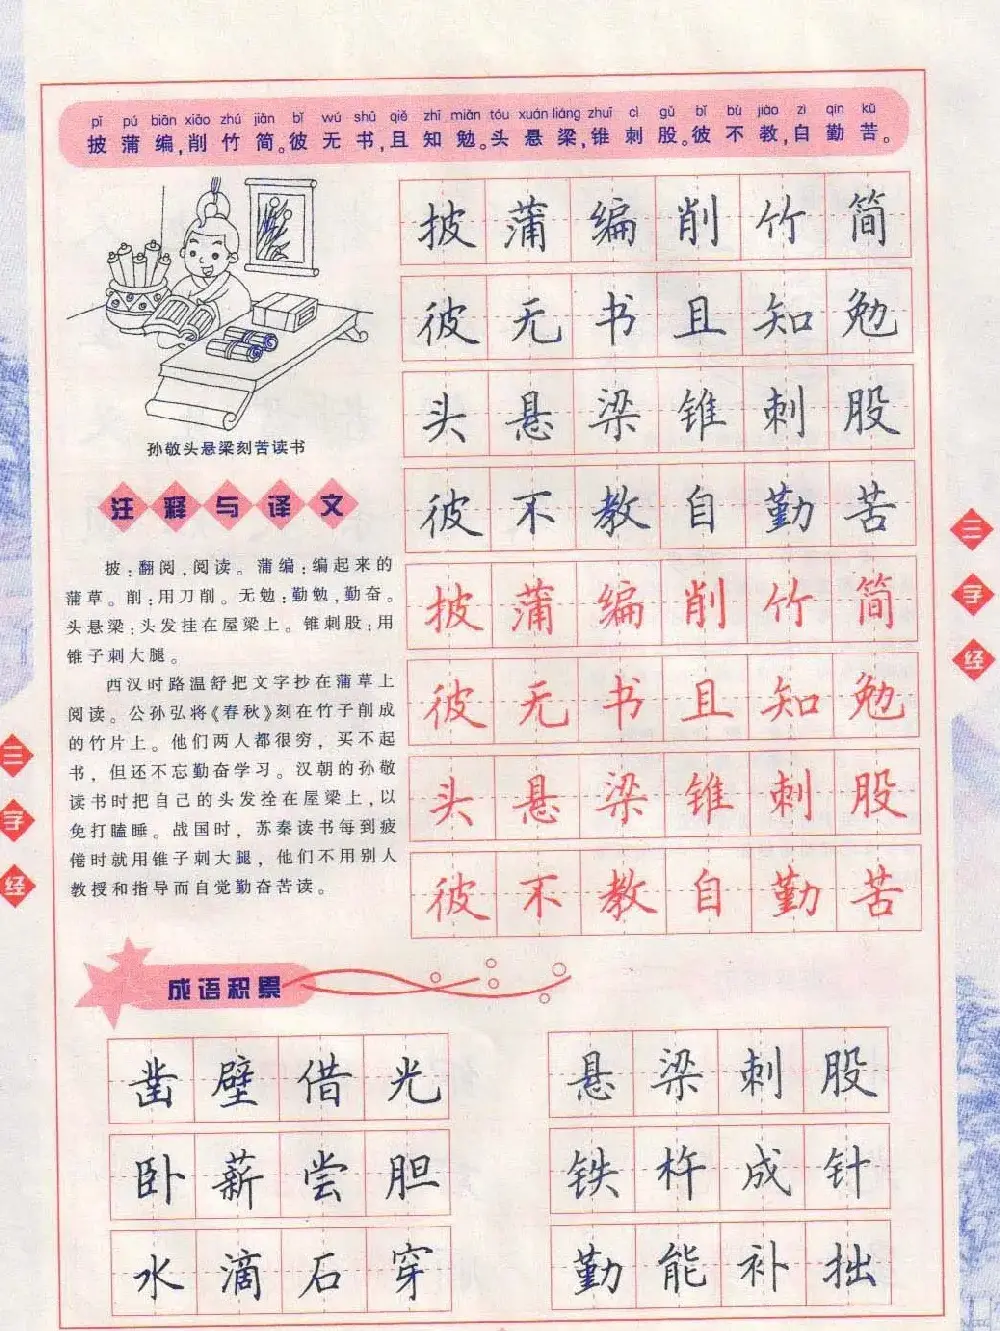 pī pú biān xiāo zhú jiǎn bǐ wú shū qiě zhī miǎn tóu xuán liáng zhuī cì gǔ bǐ bù jiào zì qín kǔ
披蒲编,削竹简。彼无书,且知勉。头悬梁,锥刺股。彼不教,自勤苦。
孙敬头悬梁刻苦读书
注释与译文
披:翻阅,阅读。蒲编:编起来的
蒲草。削:用刀削。无勉:勤勉,勤奋。
头悬梁:头发挂在屋梁上。锥刺股:用
锥子刺大腿。
西汉时路温舒把文字抄在蒲草上
阅读。公孙弘将《春秋》刻在竹子削成
的竹片上。他们两人都很穷,买不起
书,但还不忘勤奋学习。汉朝的孙敬
读书时把自己的头发拴在屋梁上,以
免打瞌睡。战国时,苏秦读书每到疲
倦时就用锥子刺大腿,他们不用别人
教授和指导而自觉勤奋苦读。
披蒲编削竹简
彼无书且知勉
头悬梁锥刺股
彼不教自勤苦
披蒲编削竹简
彼无书且知勉
头悬梁锥刺股
彼不教自勤苦
三字经
三字经
成语积累
凿壁借光
悬梁刺股
卧薪尝胆
铁杵成针
水滴石穿
勤能补拙